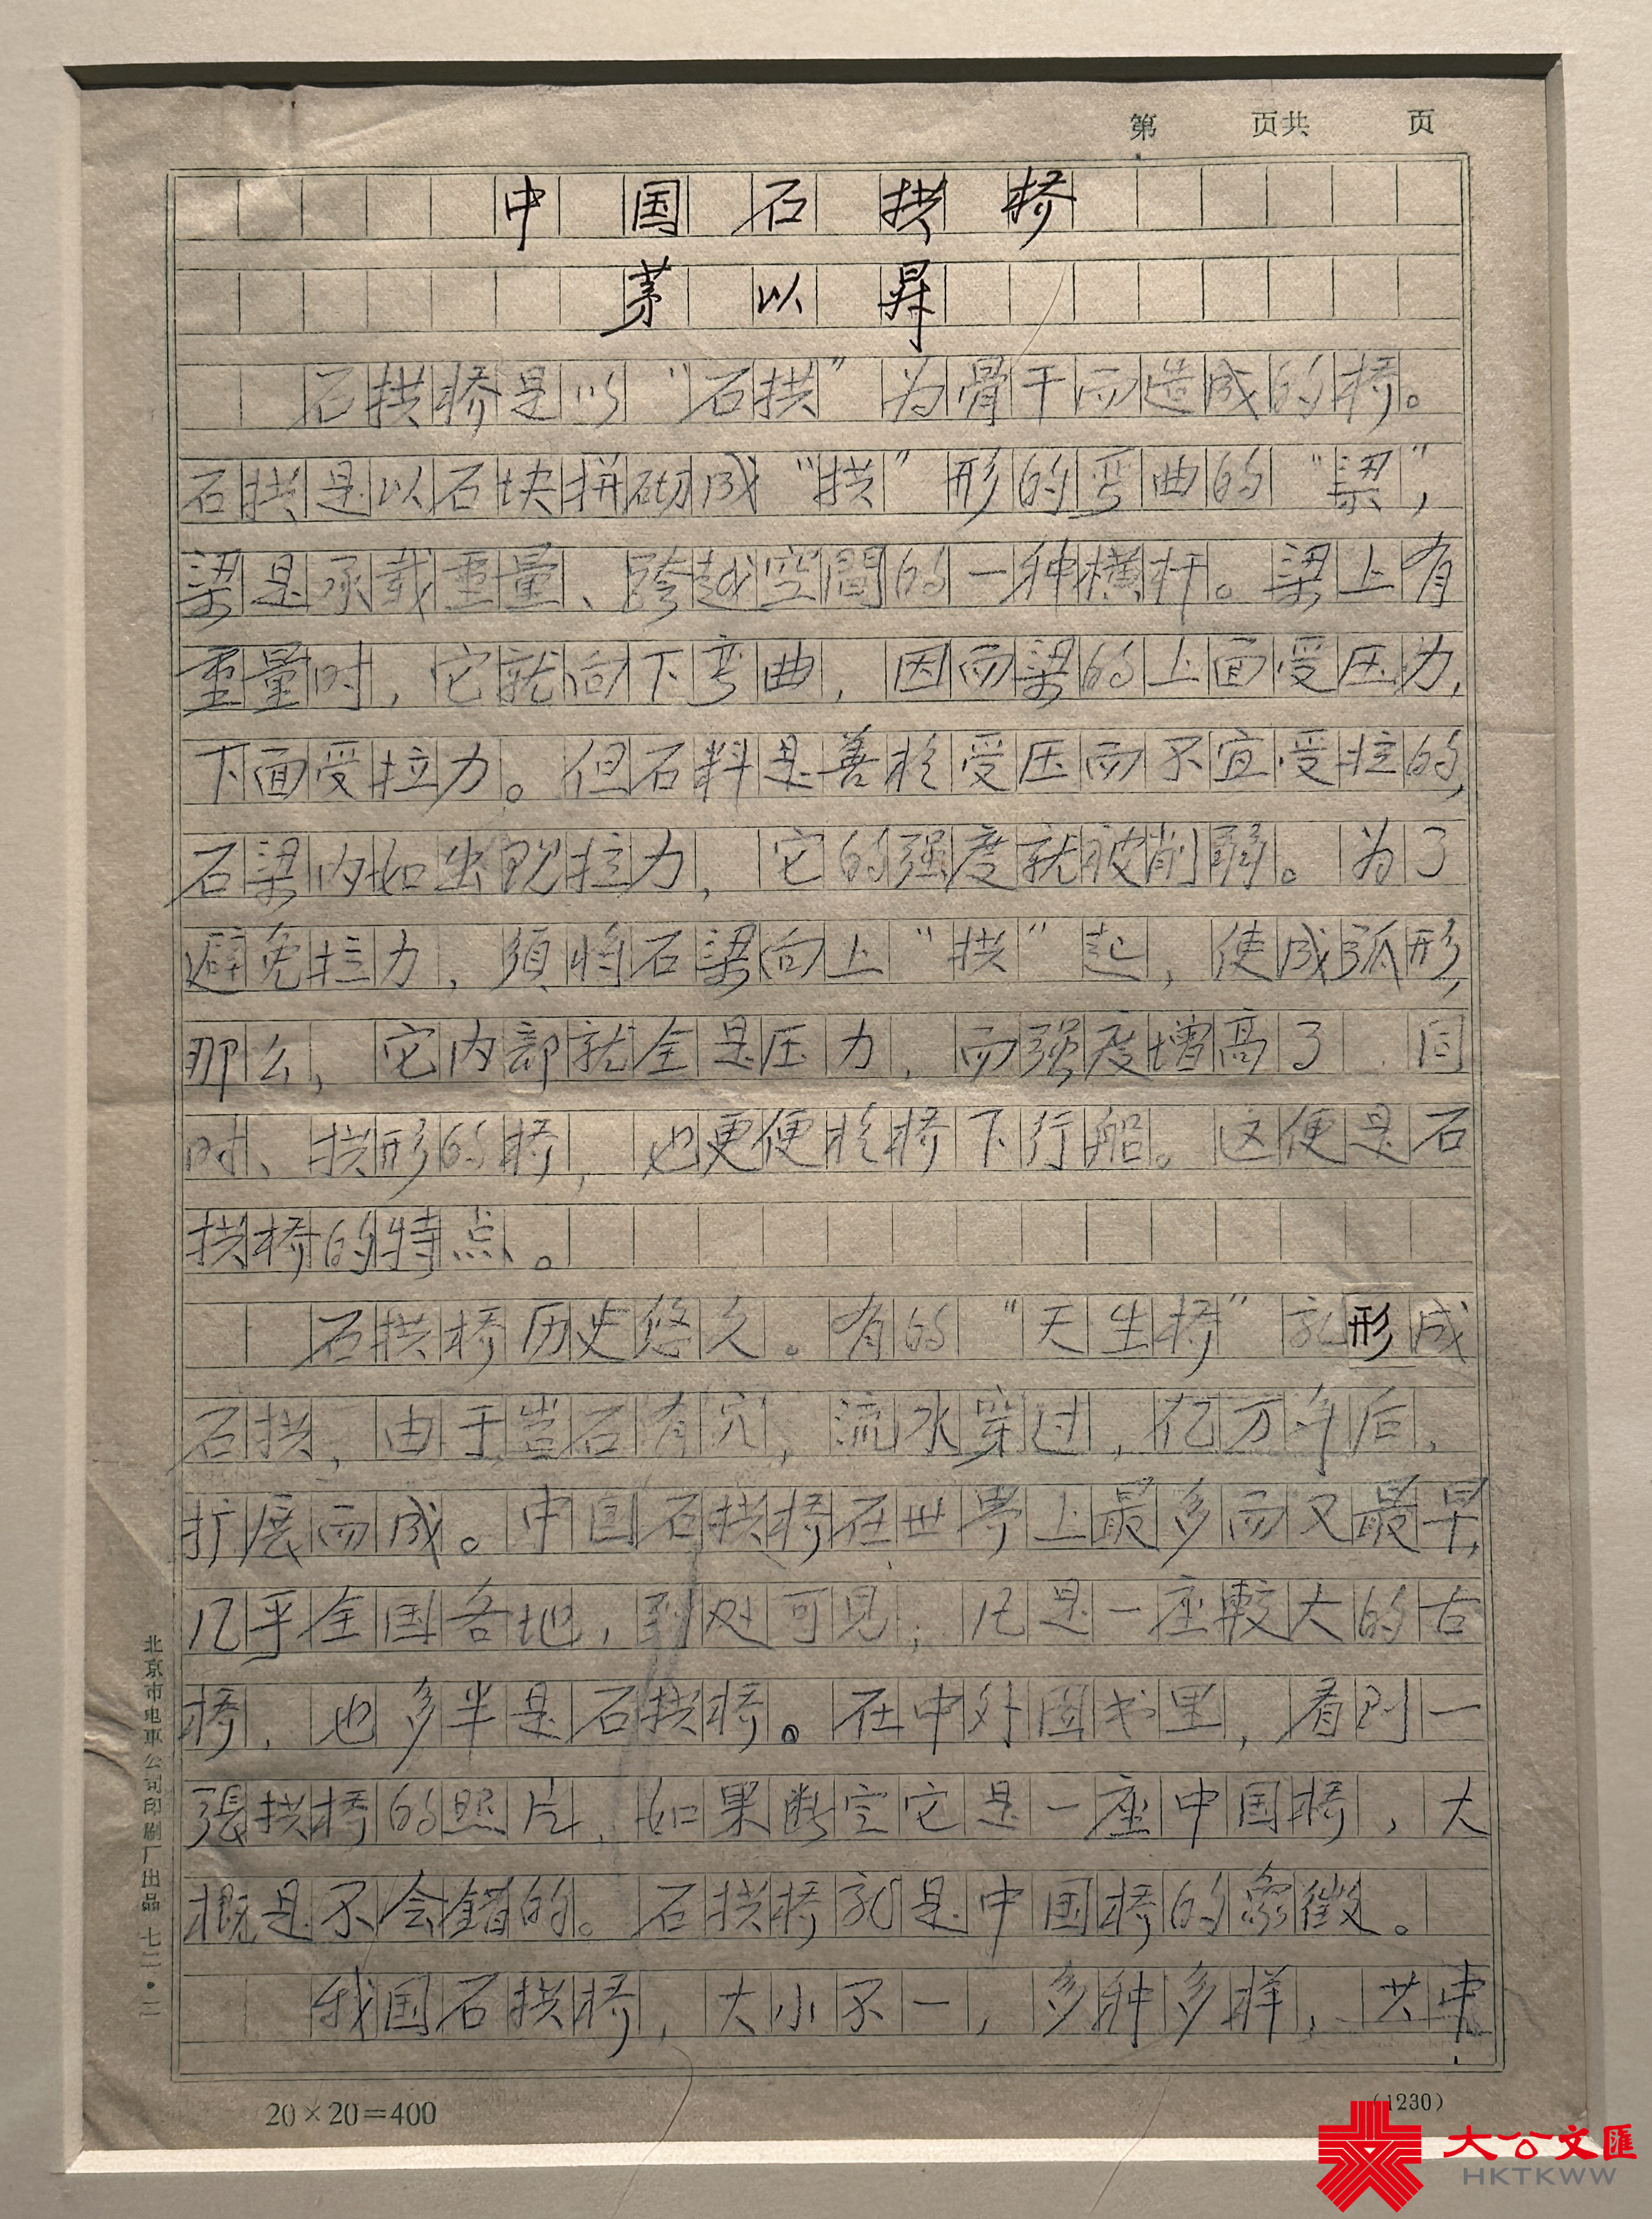 第 页共 页
中国石拱桥
茅以昇
石拱桥是以“石拱”为骨干而造成的桥。
石拱是以石块拼砌成“拱”形的弯曲的“梁”,
梁是承载重量、跨越空間的一种横杆。梁上有
重量时,它就向下弯曲,因而梁的上面受压力,
下面受拉力。但石料是善於受压而不宜受拉的,
石梁内如出现拉力,它的强度就被削弱。为了
避免拉力,须将石梁向上“拱”起,使成弧形,
那么,它内部就全是压力,而强度增高了.同
时、拱形的桥,也更便於桥下行船。这便是石
拱桥的特点。
石拱桥历史悠久。有的“天生桥”就形成
石拱,由于岩石有穴,流水穿过,亿万年后,
扩展而成。中国石拱桥在世界上最多而又最早,
几乎全国各地,到处可见;凡是一座較大的古
桥,也多半是石拱桥。在中外图书里,看到一
張拱桥的照片,如果断定它是一座中国桥,大
概是不会錯的。石拱桥就是中国桥的象徵。
我国石拱桥,大小不一,多种多样,其中
北京市电車公司印刷厂出品 七三·三
20×20=400
(1230)
大公文匯
HKTKWW